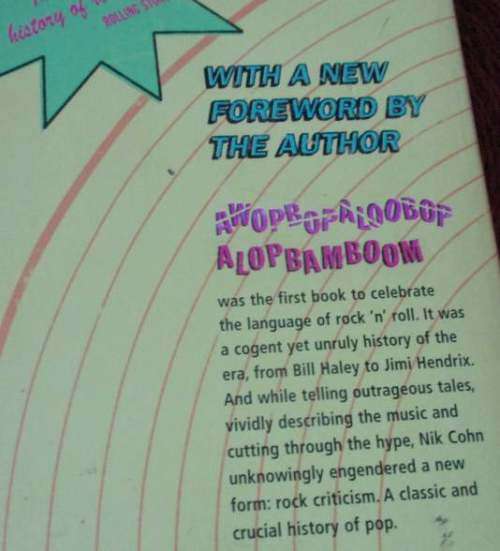 history of
ROLLING STONE
WITH A NEW
FOREWORD BY
THE AUTHOR
AWOPBOPALOOBOP
ALOPBAMBOOM
was the first book to celebrate
the language of rock 'n' roll. It was
a cogent yet unruly history of the
era, from Bill Haley to Jimi Hendrix.
And while telling outrageous tales,
vividly describing the music and
cutting through the hype, Nik Cohn
unknowingly engendered a new
form: rock criticism. A classic and
crucial history of pop.